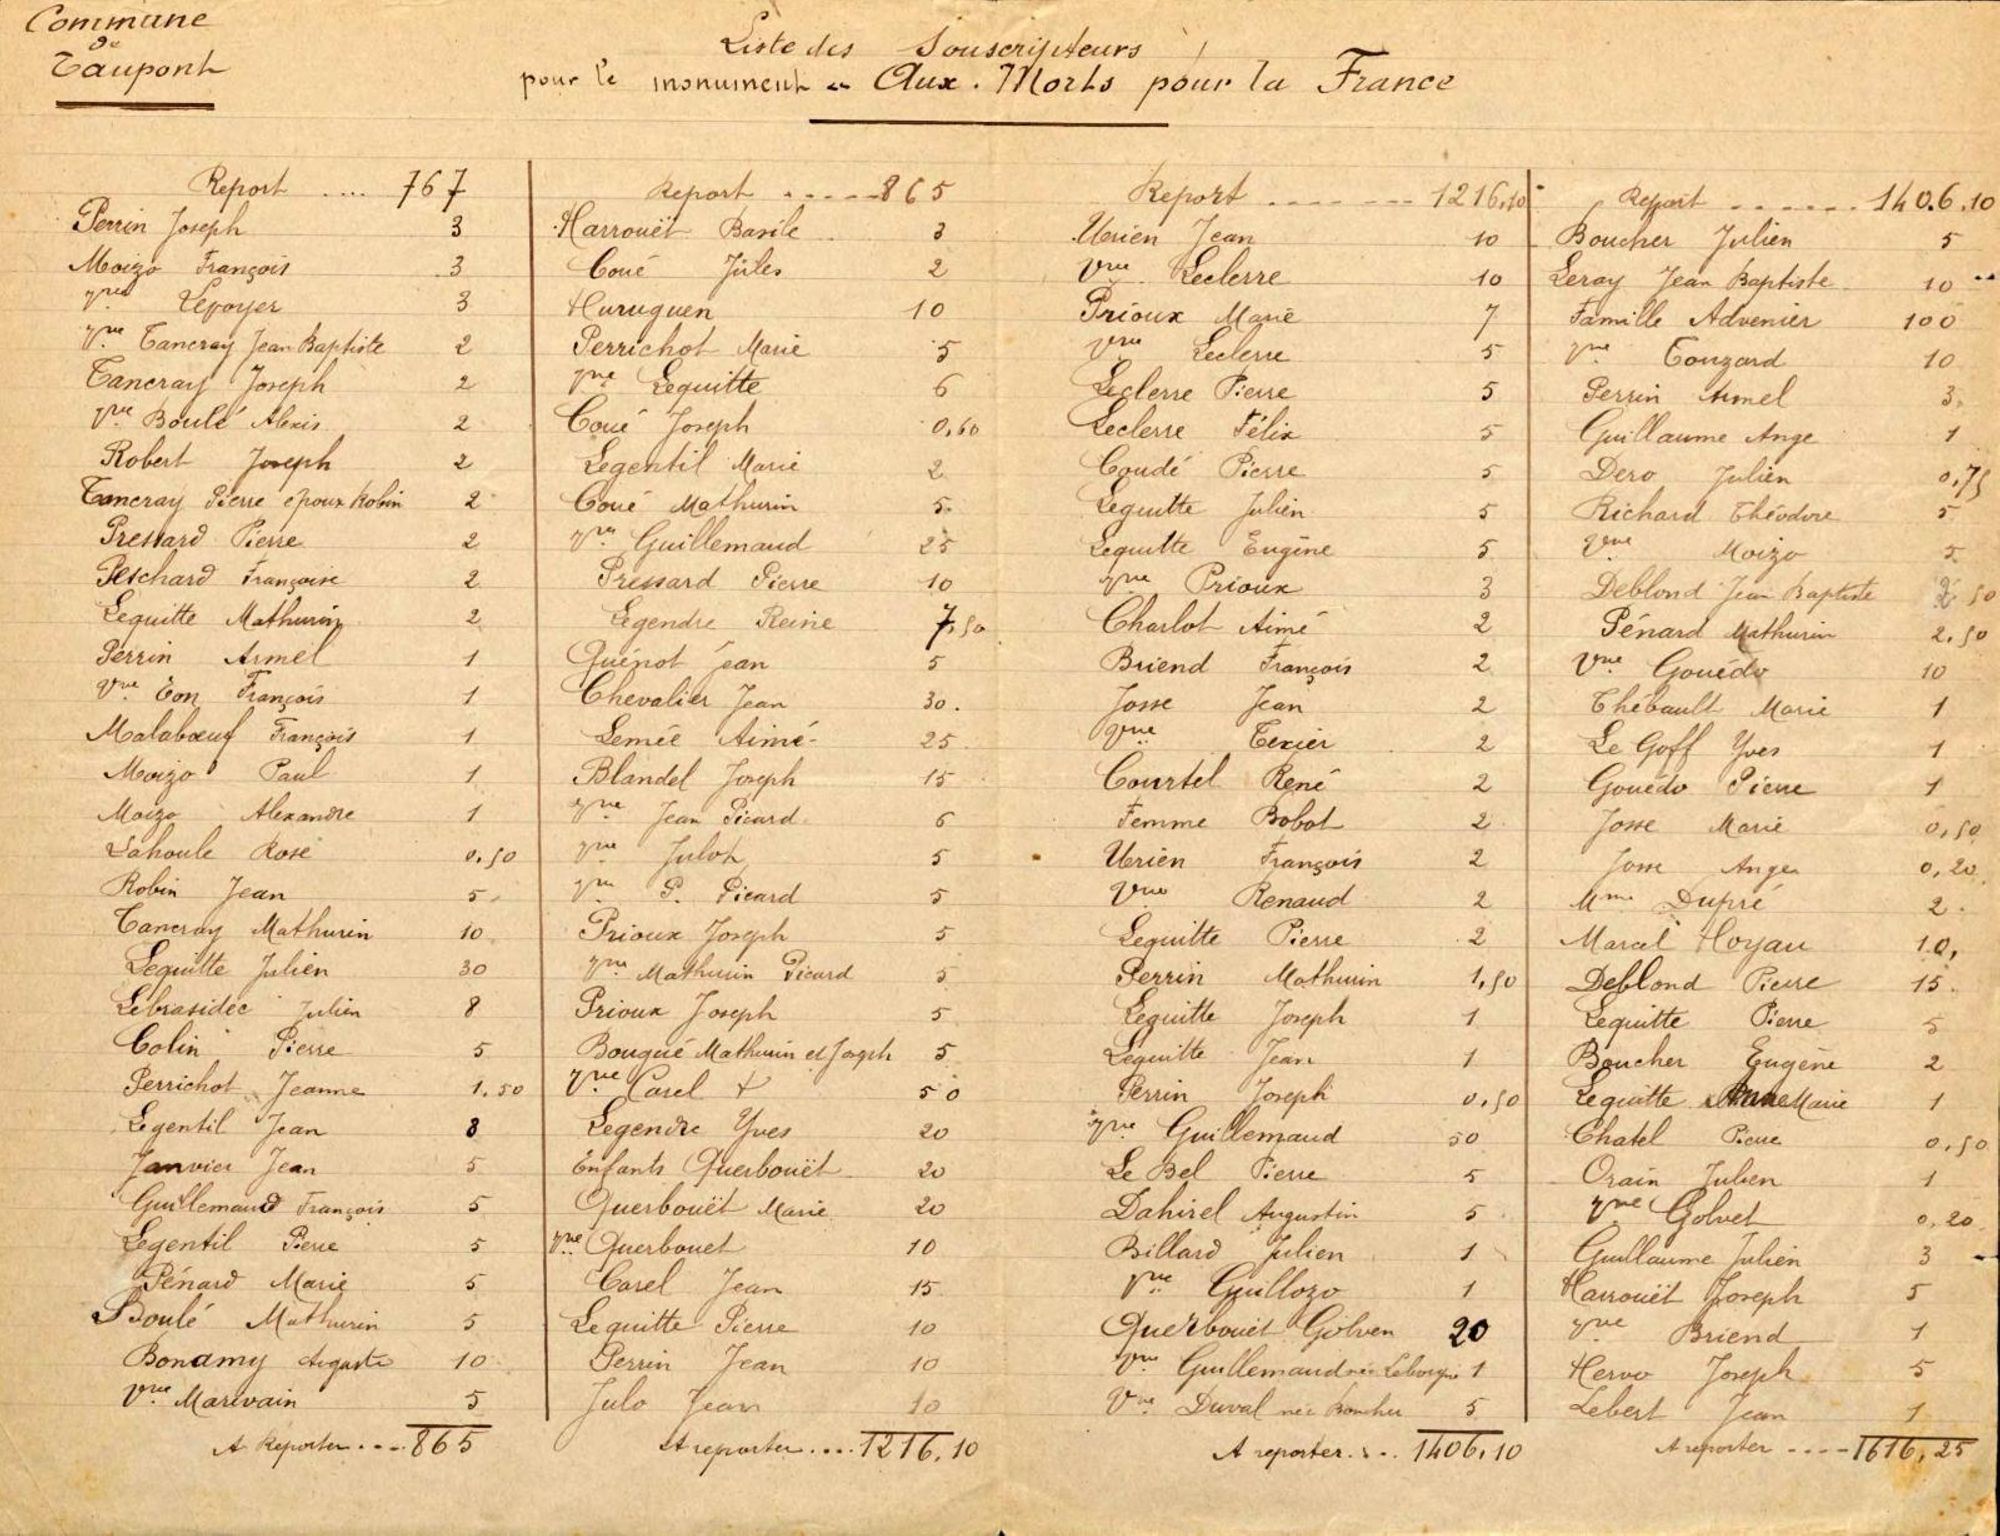 Commune
de
Taupont
Liste des Souscripteurs
pour le monument " Aux Morts pour la France
Report .... 767
Perrin Joseph 3
Moizo François 3
Vve Lepoyer 3
Vve Tancray Jean Baptiste 2
Tancray Joseph 2
Vve Boulé Alexis 2
Robert Joseph 2
Tancray Pierre epoux Robin 2
Pressard Pierre 2
Peschard Françoise 2
Lequitte Mathurin 2
Perrin Armel 1
Vve Eon François 1
Malabœuf François 1
Moizo Paul 1
Moizo Alexandre 1
Lahoule Rose 0,50
Robin Jean 5
Tancray Mathurin 10
Lequitte Julien 30
Lebrasidec Julien 8
Colin Pierre 5
Perrichot Jeanne 1.50
Legentil Jean 8
Janvier Jean 5
Guillemaud François 5
Legentil Pierre 5
Pénard Marie 5
Boulé Mathurin 5
Bonamy Auguste 10
Vve Marivain 5
A Reporter .... 865
Report ..... 865
Harrouët Basile 3
Coué Jules 2
Huruguen 10
Perrichot Marie 5
Vve Lequitte 6
Coué Joseph 0,60
Legentil Marie 2
Coué Mathurin 5
Vve Guillemaud 25
Pressard Pierre 10
Legendre Reine 7,50
Quénot Jean 5
Chevalier Jean 30.
Lemée Aimé 25
Blandel Joseph 15
Vve Jean Picard 6
Vve Julot 5
Vve P. Picard 5
Prioux Joseph 5
Vve Mathurin Picard 5
Prioux Joseph 5
Bougué Mathurin et Joseph 5
Vve Carel + 50
Legendre Yves 20
Enfants Querbouët 20
Querbouët Marie 20
Vve Querbouet 10
Carel Jean 15
Lequitte Pierre 10
Perrin Jean 10
Julo Jean 10
A reporter .... 1216.10
Report ....... 1216,10
Urien Jean 10
Vve Leclerre 10
Prioux Marie 7
Vve Leclerre 5
Leclerre Pierre 5
Leclerre Félix 5
Coudé Pierre 5
Lequitte Julien 5
Lequitte Eugène 5
Vve Prioux 3
Charlot Aimé 2
Briend François 2
Josse Jean 2
Vve Texier 2
Courtel René 2
Femme Bobot 2
Urien François 2
Vve Renaud 2
Lequitte Pierre 2
Perrin Mathurin 1,50
Lequitte Joseph 1
Lequitte Jean 1
Perrin Joseph 0,50
Vve Guillemaud 50
Le Bel Pierre 5
Dahirel Augustin 5
Billard Julien 1
Vve Guillozo 1
Querbouët Golven 20
Vve Guillemaud née 1
Vve Duval née Boucher 5
A reporter ... 1406,10
Report ...... 1406.10
Boucher Julien 5
Leray Jean Baptiste 10
Famille Advenier 100
Vve Touzard 10
Perrin Armel 3
Guillaume Ange 1
Dero Julien 0,75
Richard Théodore 5
Vve Moizo 5
Deblond Jean Baptiste 2 50
Pénard Mathurin 2.50
Vve Gouédo 10
Thébault Marie 1
Le Goff Yves 1
Gouédo Pierre 1
Josse Marie 0,50
Josse Ange 0,20
Mme Dupré 2
Marcel Hoyau 10,
Deblond Pierre 15
Lequitte Pierre 5
Boucher Eugène 2
Lequitte Marie 1
Chatel Pierre 0,50
Orain Julien 1
Vve Golvet 0,20
Guillaume Julien 3
Harrouët Joseph 5
Vve Briend 1
Hervo Joseph 5
Lebert Jean 1
A reporter .... 1616,25